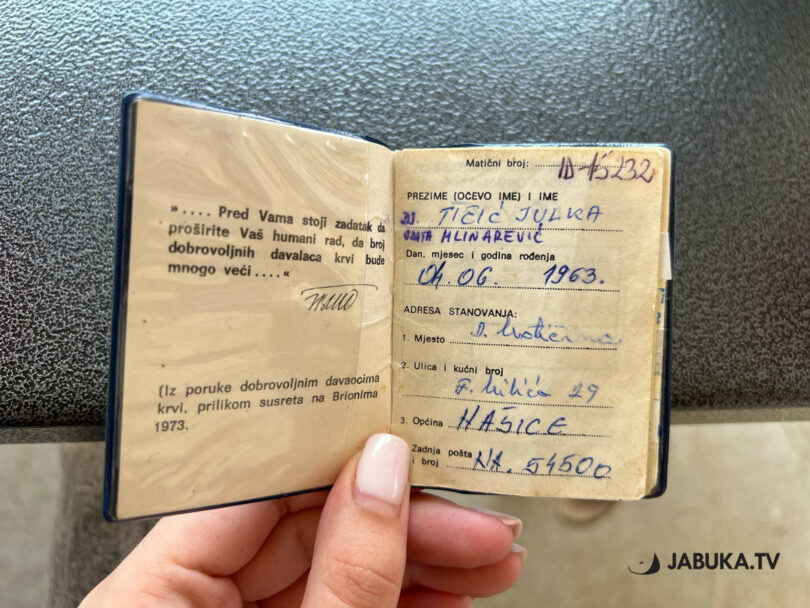 ».... Pred Vama stoji zadatak da
proširite Vaš humani rad, da broj
dobrovoljnih davalaca krvi bude
mnogo veći ....«
(Iz poruke dobrovoljnim davaocima
krvi, prilikom susreta na Brionima
1973.
Matični broj: ID-15232
PREZIME (OČEVO IME) I IME
DJ. TIČIĆ JULKA
UDATA MLINAREVIĆ
Dan, mjesec i godina rođenja
04. 06. 1963.
ADRESA STANOVANJA:
1. Mjesto D. Motičina
2. Ulica i kućni broj
29
3. Općina NAŠICE
Zadnja pošta
i broj NA. 54500
JABUKA.TV